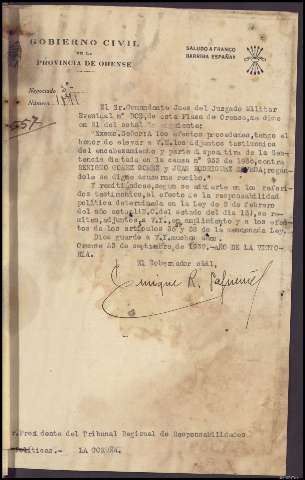 GOBIERNO CIVIL
DE LA
PROVINCIA DE ORENSE
SALUDO A FRANCO
¡ARRIBA ESPAÑA!
Negociado 3º
Número
557
El Sr. Comandante Juez del Juzgado Militar
Eventual nº DOS, de esta Plaza de Orense, me dice
en 21 del actual lo siguiente:
"EXCMO. SEÑOR: A los efectos procedentes, tengo el
honor de elevar a V.E. los adjuntos testimonios
del encabezamiento y parte dispositiva de la Sen-
tencia dictada en la causa nº 983 de 1936, contra
GOMEZ y JUAN RODRIGUEZ rogán-
dole se digne acusarme recibo."
Y remitiéndose, según se advierte en los referi-
dos testimonios, al efecto de la responsabilidad
política determinada en la Ley de 9 de febrero
del año actual (B.O. del estado del día 13), se re-
miten, adjuntos a V.I., en cumplimiento y a los efec-
tos de los artículos 35 y 53 de la mencionada Ley.
Dios guarde a V.I. muchos años.
Orense 23 de septiembre de 1939.-AÑO DE LA VICTO-
RIA.
El Gobernador civil,
Enrique R.
Presidente del Tribunal Regional de Responsabilidades
Políticas.- LA CORUÑA.